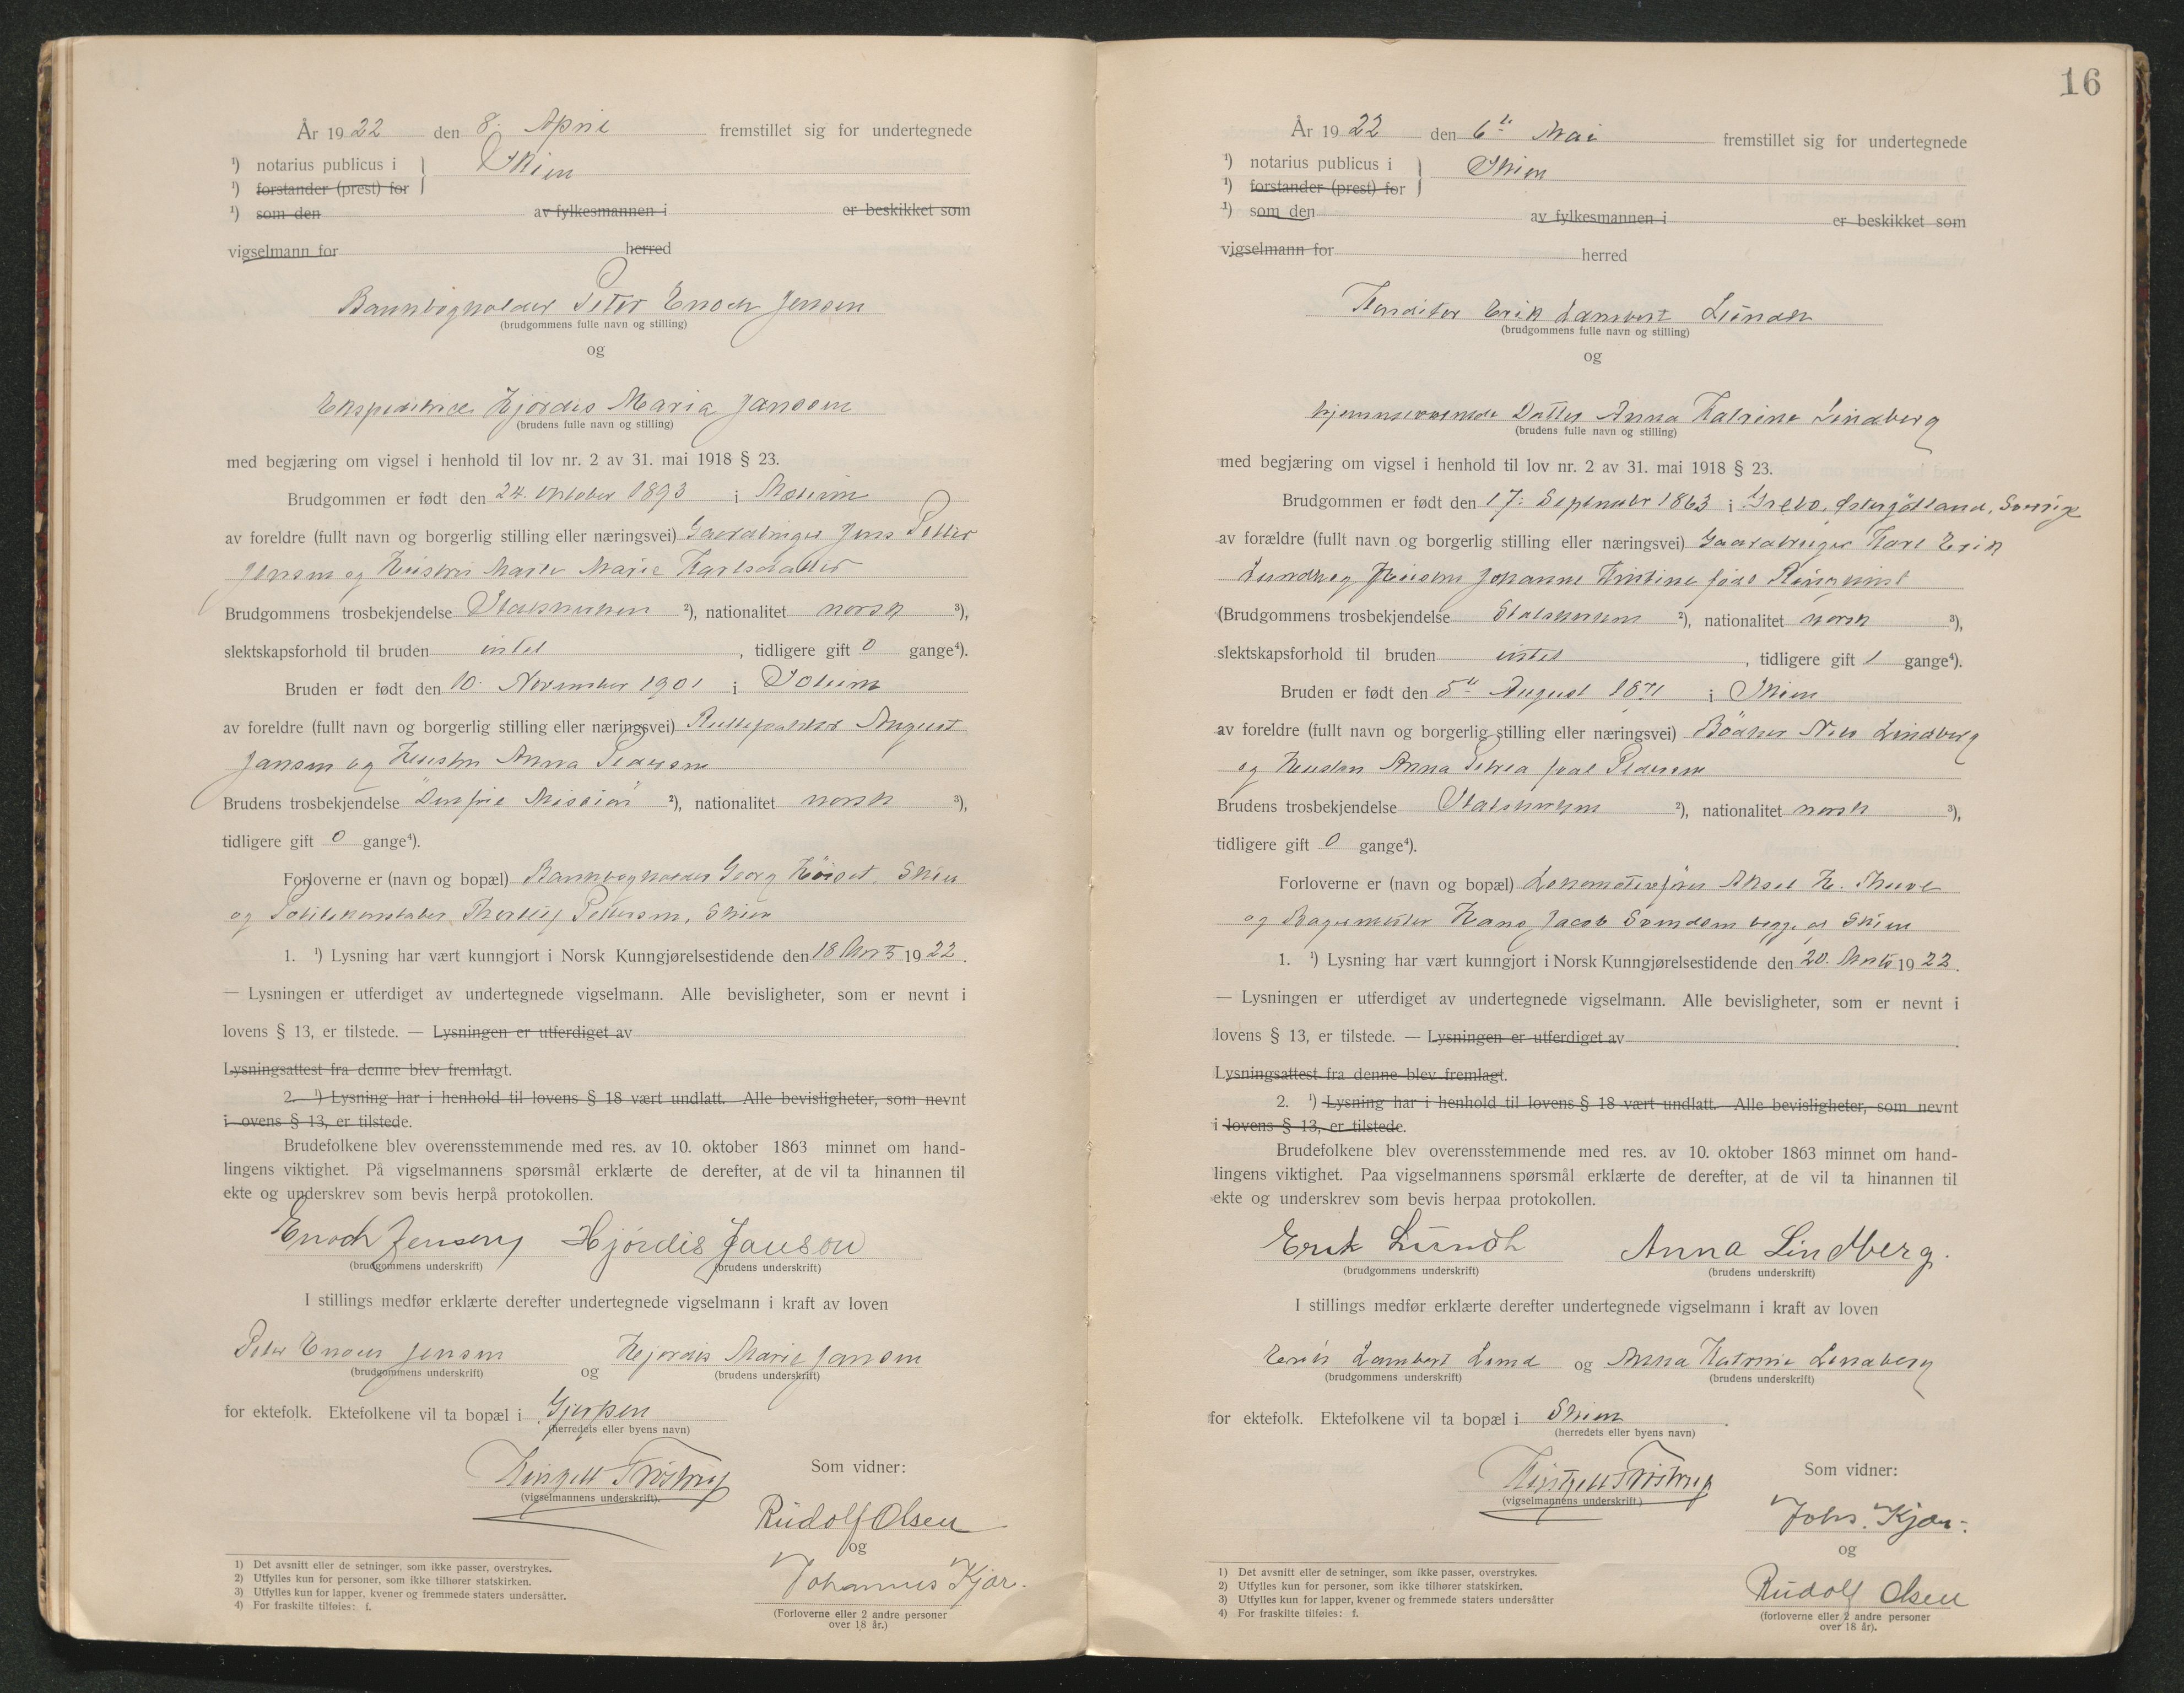 År 1922 den 8. April fremstillet sig for undertegnede
¹) notarius publicus i Skien
¹) forstander (prest) for
¹) som den av fylkesmannen i er beskikket som
vigselmann for herred
Peter Enoch Jensen
(brudgommens fulle navn og stilling)
og
Ekspeditrice Hjørdis Maria Janson
(brudens fulle navn og stilling)
med begjæring om vigsel i henhold til lov nr. 2 av 31. mai 1918 § 23.
Brudgommen er født den 24. oktober 1893 i Solum
av foreldre (fullt navn og borgerlig stilling eller næringsvei) Gaardbruger Jens Petter
Jensen og Hustru Maren Marie Karlsdatter
Brudgommens trosbekjendelse Statskirken ²), nationalitet norsk ³),
slektskapsforhold til bruden intet , tidligere gift 0 gange⁴).
Bruden er født den 10. November 1901 i Solum
av foreldre (fullt navn og borgerlig stilling eller næringsvei) August
Janson og Hustru Anna Pedersen
Brudens trosbekjendelse "Den frie Mission" ²), nationalitet norsk ³),
tidligere gift 0 gange⁴).
Forloverne er (navn og bopæl) Georg Höiset, Skien
og Politikonstabel Thorleif Pettersen, Skien
1. ¹) Lysning har vært kunngjort i Norsk Kunngjørelsestidende den 18 Marts 1922.
— Lysningen er utferdiget av undertegnede vigselmann. Alle bevisligheter, som er nevnt i
lovens § 13, er tilstede. — Lysningen er utferdiget av
Lysningsattest fra denne blev fremlagt.
2. ¹) Lysning har i henhold til lovens § 18 vært undlatt. Alle bevisligheter, som nevnt
i ovens § 13, er tilstede.
Brudefolkene blev overensstemmende med res. av 10. oktober 1863 minnet om hand-
lingens viktighet. På vigselmannens spørsmål erklærte de derefter, at de vil ta hinannen til
ekte og underskrev som bevis herpå protokollen.
Enoch Jensen Hjørdis Janson
(brudgommens underskrift) (brudens underskrift)
I stillings medfør erklærte derefter undertegnede vigselmann i kraft av loven
Peter Enoch Jensen og Hjørdis Marie Janson
(brudgommens underskrift) (brudens underskrift)
for ektefolk. Ektefolkene vil ta bopæl i Gjerpen
(herredets eller byens navn)
(vigselmannens underskrift).
Som vidner:
Rudolf Olsen
og
Johannes Kjær.
(Forloverne eller 2 andre personer
over 18 år.)
1) Det avsnitt eller de setninger, som ikke passer, overstrykes.
2) Utfylles kun for personer, som ikke tilhører statskirken.
3) Utfylles kun for lapper, kvener og fremmede staters undersåtter.
4) For fraskilte tilføies: f.
16
År 1922 den 6te Mai fremstillet sig for undertegnede
¹) notarius publicus i Skien
¹) forstander (prest) for
¹) som den av fylkesmannen i er beskikket som
vigselmann for herred
Konditor Erik Lambert Lundh
(brudgommens fulle navn og stilling)
og
hjemmeværende Datter Anna Katrine Lindberg
(brudens fulle navn og stilling)
med begjæring om vigsel i henhold til lov nr. 2 av 31. mai 1918 § 23.
Brudgommen er født den 17. September 1863 i Grebo, Østergötland, Sverige
av forældre (fullt navn og borgerlig stilling eller næringsvei) Gaardbruger Karl Erik
Lundh og Hustru Johanne Kristine født
(Brudgommens trosbekjendelse Statskirken ²), nationalitet norsk ³),
slektskapsforhold til bruden intet , tidligere gift 1 gange⁴).
Bruden er født den 5te August 1871 i Skien
av foreldre (fullt navn og borgerlig stilling eller næringsvei) Bødker Nils Lindberg
og Hustru Anna Petrea født Pedersen
Brudens trosbekjendelse Statskirken ²), nationalitet norsk ³),
tidligere gift 0 gange⁴).
Forloverne er (navn og bopæl) Lokomotivfører Aksel H.
og Bagermester Hans Jacob Svendsen begge af Skien
1. ¹) Lysning har vært kunngjort i Norsk Kunngjørelsestidende den 20. Marts 1922.
— Lysningen er utferdiget av undertegnede vigselmann. Alle bevisligheter, som er nevnt i
lovens § 13, er tilstede. — Lysningen er utferdiget av
Lysningsattest fra denne blev fremlagt.
2. ¹) Lysning har i henhold til lovens § 18 vært undlatt. Alle bevisligheter, som nevnt
i lovens § 13, er tilstede.
Brudefolkene blev overensstemmende med res. av 10. oktober 1863 minnet om hand-
lingens viktighet. Paa vigselmannens spørsmål erklærte de derefter, at de vil ta hinannen til
ekte og underskrev som bevis herpaa protokollen.
Erik Lundh Anna Lindberg.
(brudgommens underskrift) (brudens underskrift)
I stillings medfør erklærte derefter undertegnede vigselmann i kraft av loven
Erik Lambert Lund og Anna Katrine Lindberg
(brudgommens underskrift) (brudens underskrift)
for ektefolk. Ektefolkene vil ta bopæl i Skien.
(herredets eller byens navn)
(vigselmannens underskrift.)
Som vidner:
Johs. Kjær.
og
Rudolf Olsen
(forloverne eller 2 andre personer
over 18 år).
1) Det avsnitt eller de setninger, som ikke passer, overstrykes.
2) Utfylles kun for personer, som ikke tilhører statskirken.
3) Utfylles kun for lapper, kvener og fremmede staters undersåtter
4) For fraskilte tilføies: f.